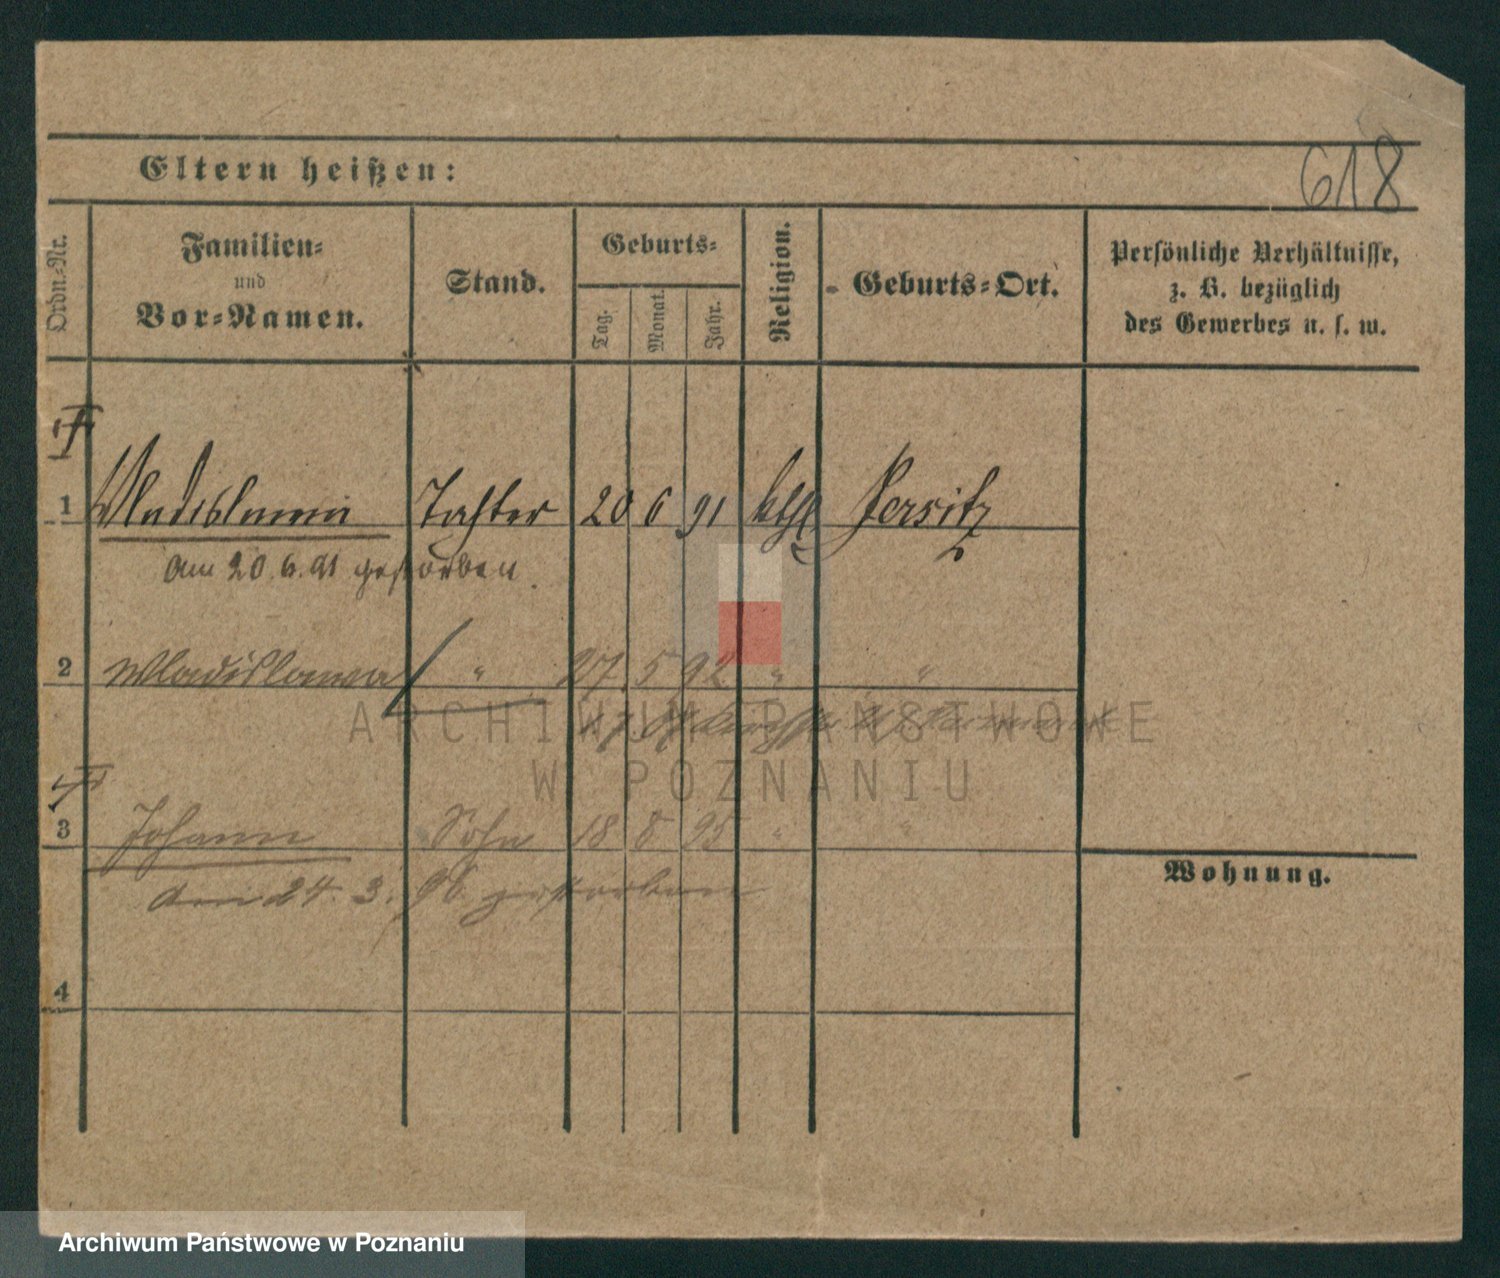 618
Eltern heißen:
Ordn.-Nr.
Familien-
und
Vor-Namen.
Stand.
Geburts-
Tag.
Monat.
Jahr.
Religion.
Geburts-Ort.
Persönliche Verhältnisse,
z. B. bezüglich
des Gewerbes u. s. w.
1 Wladislawa Tochter 20 6 91 kth Jersitz
am 20.6.91 gestorben.
2 Wladislawa " 27. 5 92 " "
ARCHIWUM PAŃSTWOWE
W POZNANIU
3 Johann Sohn 18 8 95 " "
Wohnung.
am 24. 3. 96 gestorben
4
Archiwum Państwowe w Poznaniu